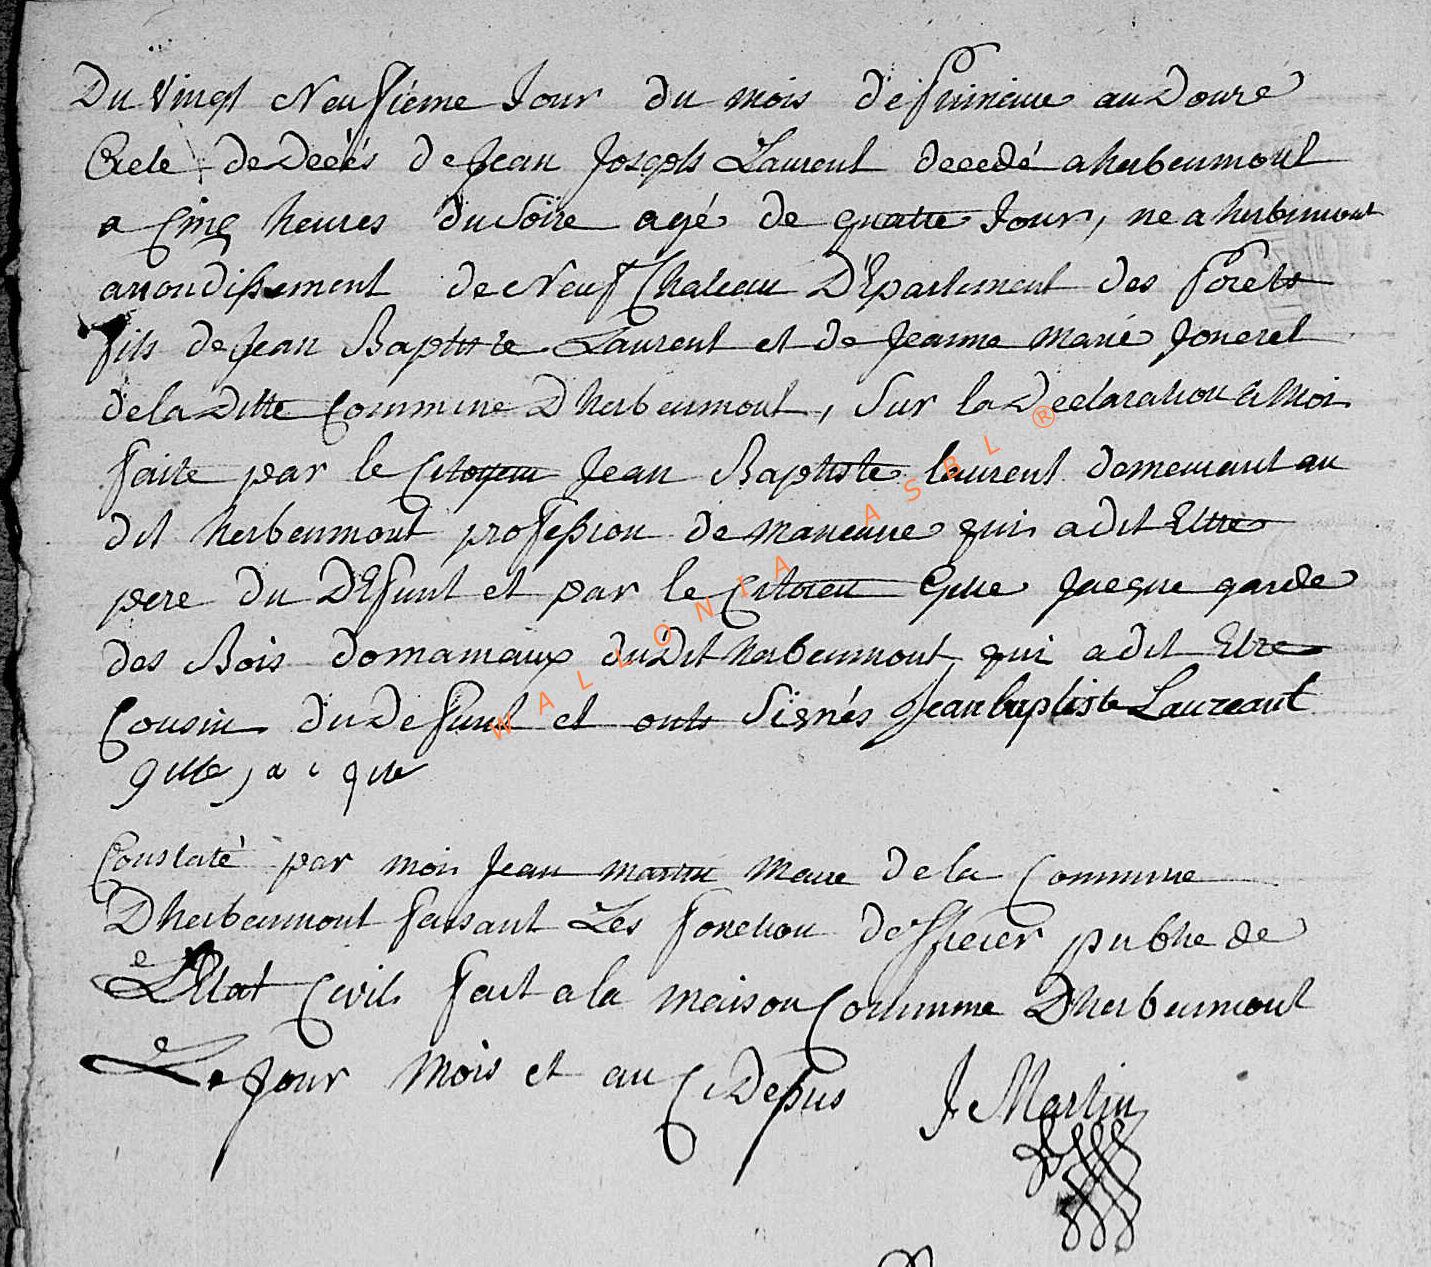 Du vingt Neufieme Jour du mois de frimeire an Douze
Acte de Deces de Jean Joseph Laurent decedé a herbeumont
a Cinq heures du Soire agé de quatre Jour, ne a herbeumont
arrondissement de Neuf Chateau D'Epartement des forets
fils de Jean Baptiste Laurent et de Jeanne Marie Joneret
de la Ditte Commune Dherbeumont, Sur la Declaration a Moi
faite par le Citoyen Jean Baptiste laurent domeurant au
dit herbeumont profession de maneuve qui a dit Ettre
pere du Defunt et par le Citoien Gille Jacque garde
des Bois domaniaux du Dit herbeumont qui a dit Etre
Cousin du Defunt et onts Signés Jean baptiste Laureant
gille jacque
Constaté par moi Jean martin Maire de la Commune
Dherbeumont faisant Les fonction dofficier publie de
L'Etat Civil fait a la maison Commune Dherbeumont
Le Jour Mois et an Ci Depus J. Martin
WALLONIA ASBL ®